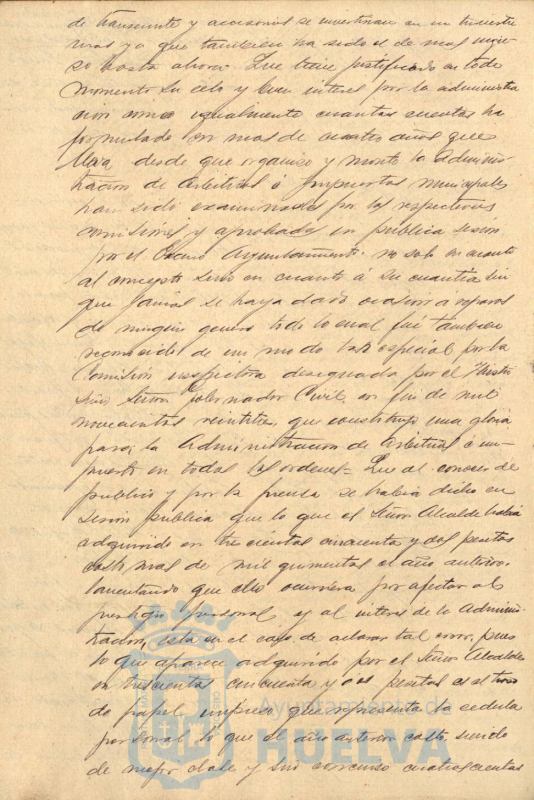 de transeunte y accesorios se invertirian en un trimestre
mas ya que tambien ha sido el de mas ingre
so hasta ahora. Que tiene justificado en todo
momento su celo y buen interes por la administra
cion como igualmente cuantas cuentas ha
formulado en mas de cuatro años que
lleva desde que organizo y monto la adminis-
tracion de Arbitrios é impuestos municipales
han sido examinadas por las respectivas
comisiones y aprobadas en publica sesion
por el Excmo Ayuntamiento no solo en cuanto
al concepto sino en cuanto á su cuantia sin
que jamas se haya dado ocasion a reparos
de ningun genero todo lo cual fué tambien
reconocido de un modo tan especial por la
Comision inspectora designada por el Ilustri
simo Señor Gobernador Civil en fin de mil
novecientos veintitres, que constituye una gloria
para la Administracion de Arbitrios é im-
puestos en todos los ordenes= Que al conocer de
publico y por la prensa se habia dicho en
sesion publica que lo que el Señor Alcalde habia
adquirido en trescientas cincuenta y dos pesetas
costó mas de mil quinientas el año anterior,
lamentando que ello ocurriera por afectar al
prestigio personal y al interes de la Adminis-
tracion, esta en el caso de aclarar tal error, pues
lo que aparece adquirido por el Señor Alcalde
en trescientas cincuenta y dos pesetas es el
de papel impreso que representa la cedula
personal lo que el año anterior costó siendo
de mejor clase y sin concurso cuatrocientas
Ayuntamiento de
HUELVA